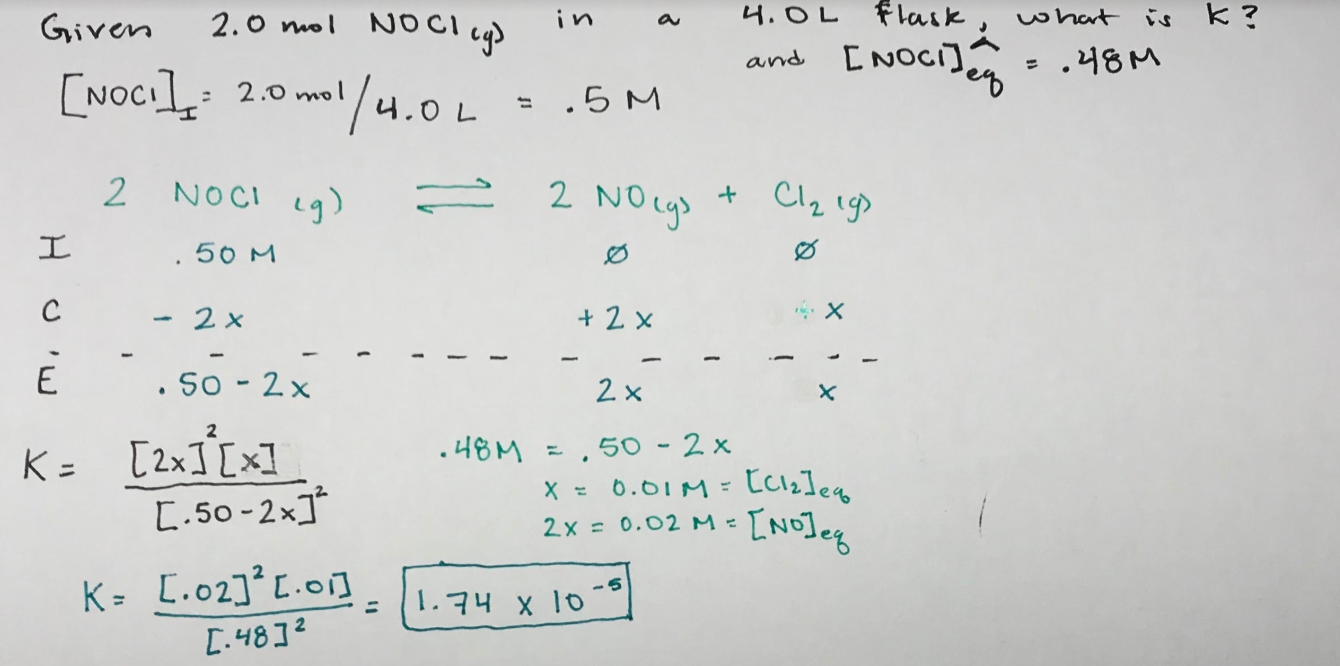 Given 2.0 mol NOCl (g) in a 4.0 L flask, what is K?
^ and [NOCl]eq = .48M
[NOCl]I = 2.0 mol/4.0 L = .5 M
2 NOCl (g) ⇌ 2 NO(g) + Cl₂ (g)
I .50 M ∅ ∅
C - 2x +2x + x
E .50 - 2x 2x x
K = [2x]²[x] / [.50-2x]²
.48M = .50 - 2x
x = 0.01M = [Cl₂]eq
2x = 0.02 M = [NO]eq
K = [.02]²[.01] / [.48]² = 1.74 x 10⁻⁵